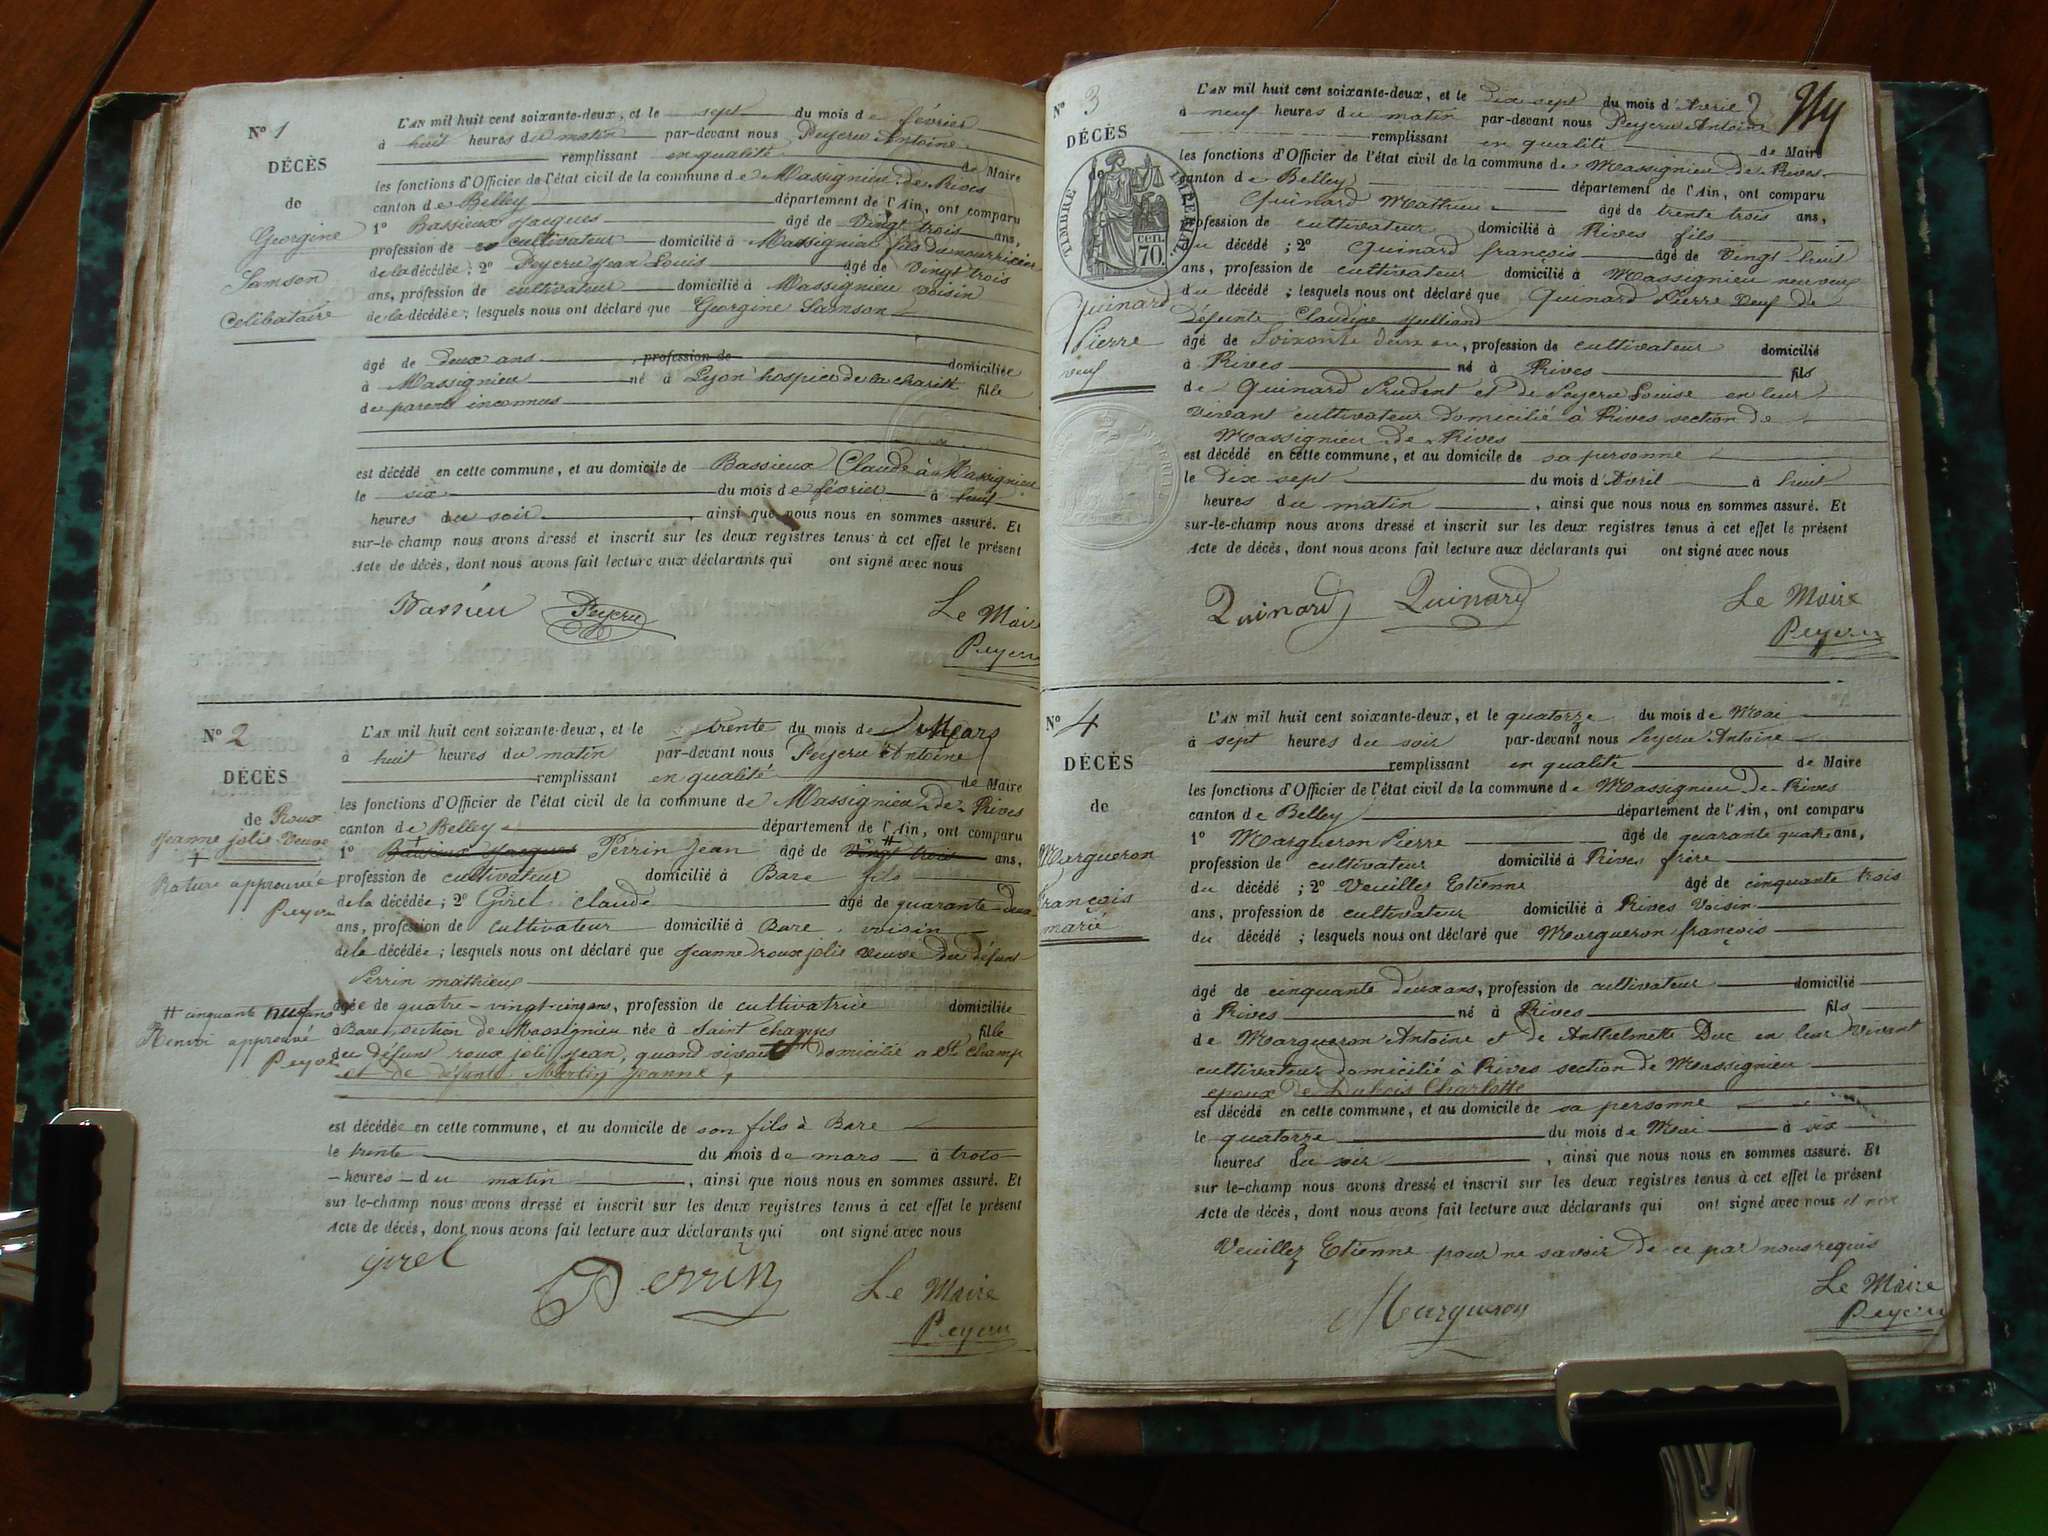 N° 1
DÉCÈS
de
Georgine
Samson
Celibataire
L'AN mil huit cent soixante-deux, et le sept du mois de février
à huit heures du matin par-devant nous Peyeru Antoine
remplissant en qualité de Maire
les fonctions d'Officier de l'état civil de la commune de Massignieu de Rives
canton de Belley département de l'Ain, ont comparu
1° Bassieux Jacques âgé de Vingt trois ans,
profession de cultivateur domicilié à Massignieu fils du nourricier
de la décédée; 2° Peyeru Jean Louis âgé de Vingt trois
ans, profession de cultivateur domicilié à Massignieu voisin
de la décédée; lesquels nous ont déclaré que Georgine Samson
âgé de deux ans, profession de domiciliée
à Massignieu né à Lyon hospice de la charité fille
de parents inconnus
est décédé en cette commune, et au domicile de Bassieux Claude à Massignieu
le six du mois de février à huit
heures du soir, ainsi que nous nous en sommes assuré. Et
sur-le-champ nous avons dressé et inscrit sur les deux registres tenus à cet effet le présent
Acte de décès, dont nous avons fait lecture aux déclarants qui ont signé avec nous
Bassieu Peyeru Le Maire
Peyeru
N° 2
DÉCÈS
de Roux
Jeanne jolie Veuve
Rature approuvée
Peyeru
# cinquante neuf ans
Renvoi approuvé
Peyeru
L'AN mil huit cent soixante-deux, et le trente du mois de Mars
à huit heures du matin par-devant nous Peyeru Antoine
remplissant en qualité de Maire
les fonctions d'Officier de l'état civil de la commune de Massignieu de Rives
canton de Belley département de l'Ain, ont comparu
1° Bassieux Jacques Perrin Jean âgé de Vingt trois # ans,
profession de cultivateur domicilié à Bare fils
de la décédée; 2° Girel claude âgé de quarante deux
ans, profession de cultivateur domicilié à Bare voisin
de la décédée; lesquels nous ont déclaré que Jeanne roux jolie veuve du défunt
Perrin mathieu
âgée de quatre-vingt-cinq ans, profession de cultivatrice domiciliée
à Bare section de Massignieu née à Saint champs fille
du défunt roux joli Jean, quand vivait domicilié a St Champ
et de défunte Martin Jeanne,
est décédée en cette commune, et au domicile de son fils à Bare
le trente du mois de mars à trois
heures du matin, ainsi que nous nous en sommes assuré. Et
sur le-champ nous avons dressé et inscrit sur les deux registres tenus à cet effet le présent
Acte de décès, dont nous avons fait lecture aux déclarants qui ont signé avec nous
Girel Perrin Le Maire
Peyeru
N° 3
DÉCÈS
de
TIMBRE IMPÉRIAL
70 cen.
Quinard
Pierre
veuf
L'AN mil huit cent soixante-deux, et le dix sept du mois d'Avril
à neuf heures du matin par-devant nous Peyeru Antoine
remplissant en qualité de Maire
les fonctions d'Officier de l'état civil de la commune de Massignieu de Rives
canton de Belley département de l'Ain, ont comparu
Quinard Mathieu âgé de trente trois ans,
profession de cultivateur domicilié à Rives fils
du décédé; 2° Quinard françois âgé de Vingt huit
ans, profession de cultivateur domicilié à Massignieu neuveu
du décédé; lesquels nous ont déclaré que Quinard Pierre Veuf de
défunte Claudine Julliand
âgé de Soixante deux an, profession de cultivateur domicilié
à Rives né à Rives fils
de Quinard Prudent et de Peyeru Louise en leur
vivant cultivateur domicilié à Rives section de
Massignieu de Rives
est décédé en cette commune, et au domicile de sa personne
le dix sept du mois d'Avril à huit
heures du matin, ainsi que nous nous en sommes assuré. Et
sur-le-champ nous avons dressé et inscrit sur les deux registres tenus à cet effet le présent
Acte de décès, dont nous avons fait lecture aux déclarants qui ont signé avec nous
Quinard Quinard Le Maire
Peyeru
N° 4
DÉCÈS
de
Margueron
François
marié
L'AN mil huit cent soixante-deux, et le quatorze du mois de Mai
à sept heures du soir par-devant nous Peyeru Antoine
remplissant en qualité de Maire
les fonctions d'Officier de l'état civil de la commune de Massignieu de Rives
canton de Belley département de l'Ain, ont comparu
1° Margueron Pierre âgé de quarante quatre ans,
profession de cultivateur domicilié à Rives frère
du décédé; 2° Veuillez Etienne âgé de cinquante trois
ans, profession de cultivateur domicilié à Rives Voisin
du décédé; lesquels nous ont déclaré que Margueron françois
âgé de cinquante deux ans, profession de cultivateur domicilié
à Rives né à Rives fils
de Margueron Antoine et de Anthelmette Duc en leur Vivant
cultivateur domicilié à Rives section de Massignieu
epoux de Dubois Charlotte
est décédé en cette commune, et au domicile de sa personne
le quatorze du mois de Mai à six
heures du soir, ainsi que nous nous en sommes assuré. Et
sur le-champ nous avons dressé et inscrit sur les deux registres tenus à cet effet le présent
Acte de décès, dont nous avons fait lecture aux déclarants qui ont signé avec nous et non
Veuillez Etienne pour ne savoir de ce par nous requis
Margueron Le Maire
Peyeru